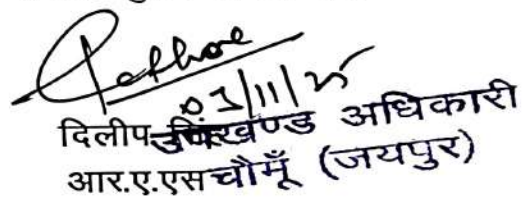 03/11/25
दिलीप सिंह
उपखण्ड अधिकारी
आर.ए.एस
चौमूँ (जयपुर)